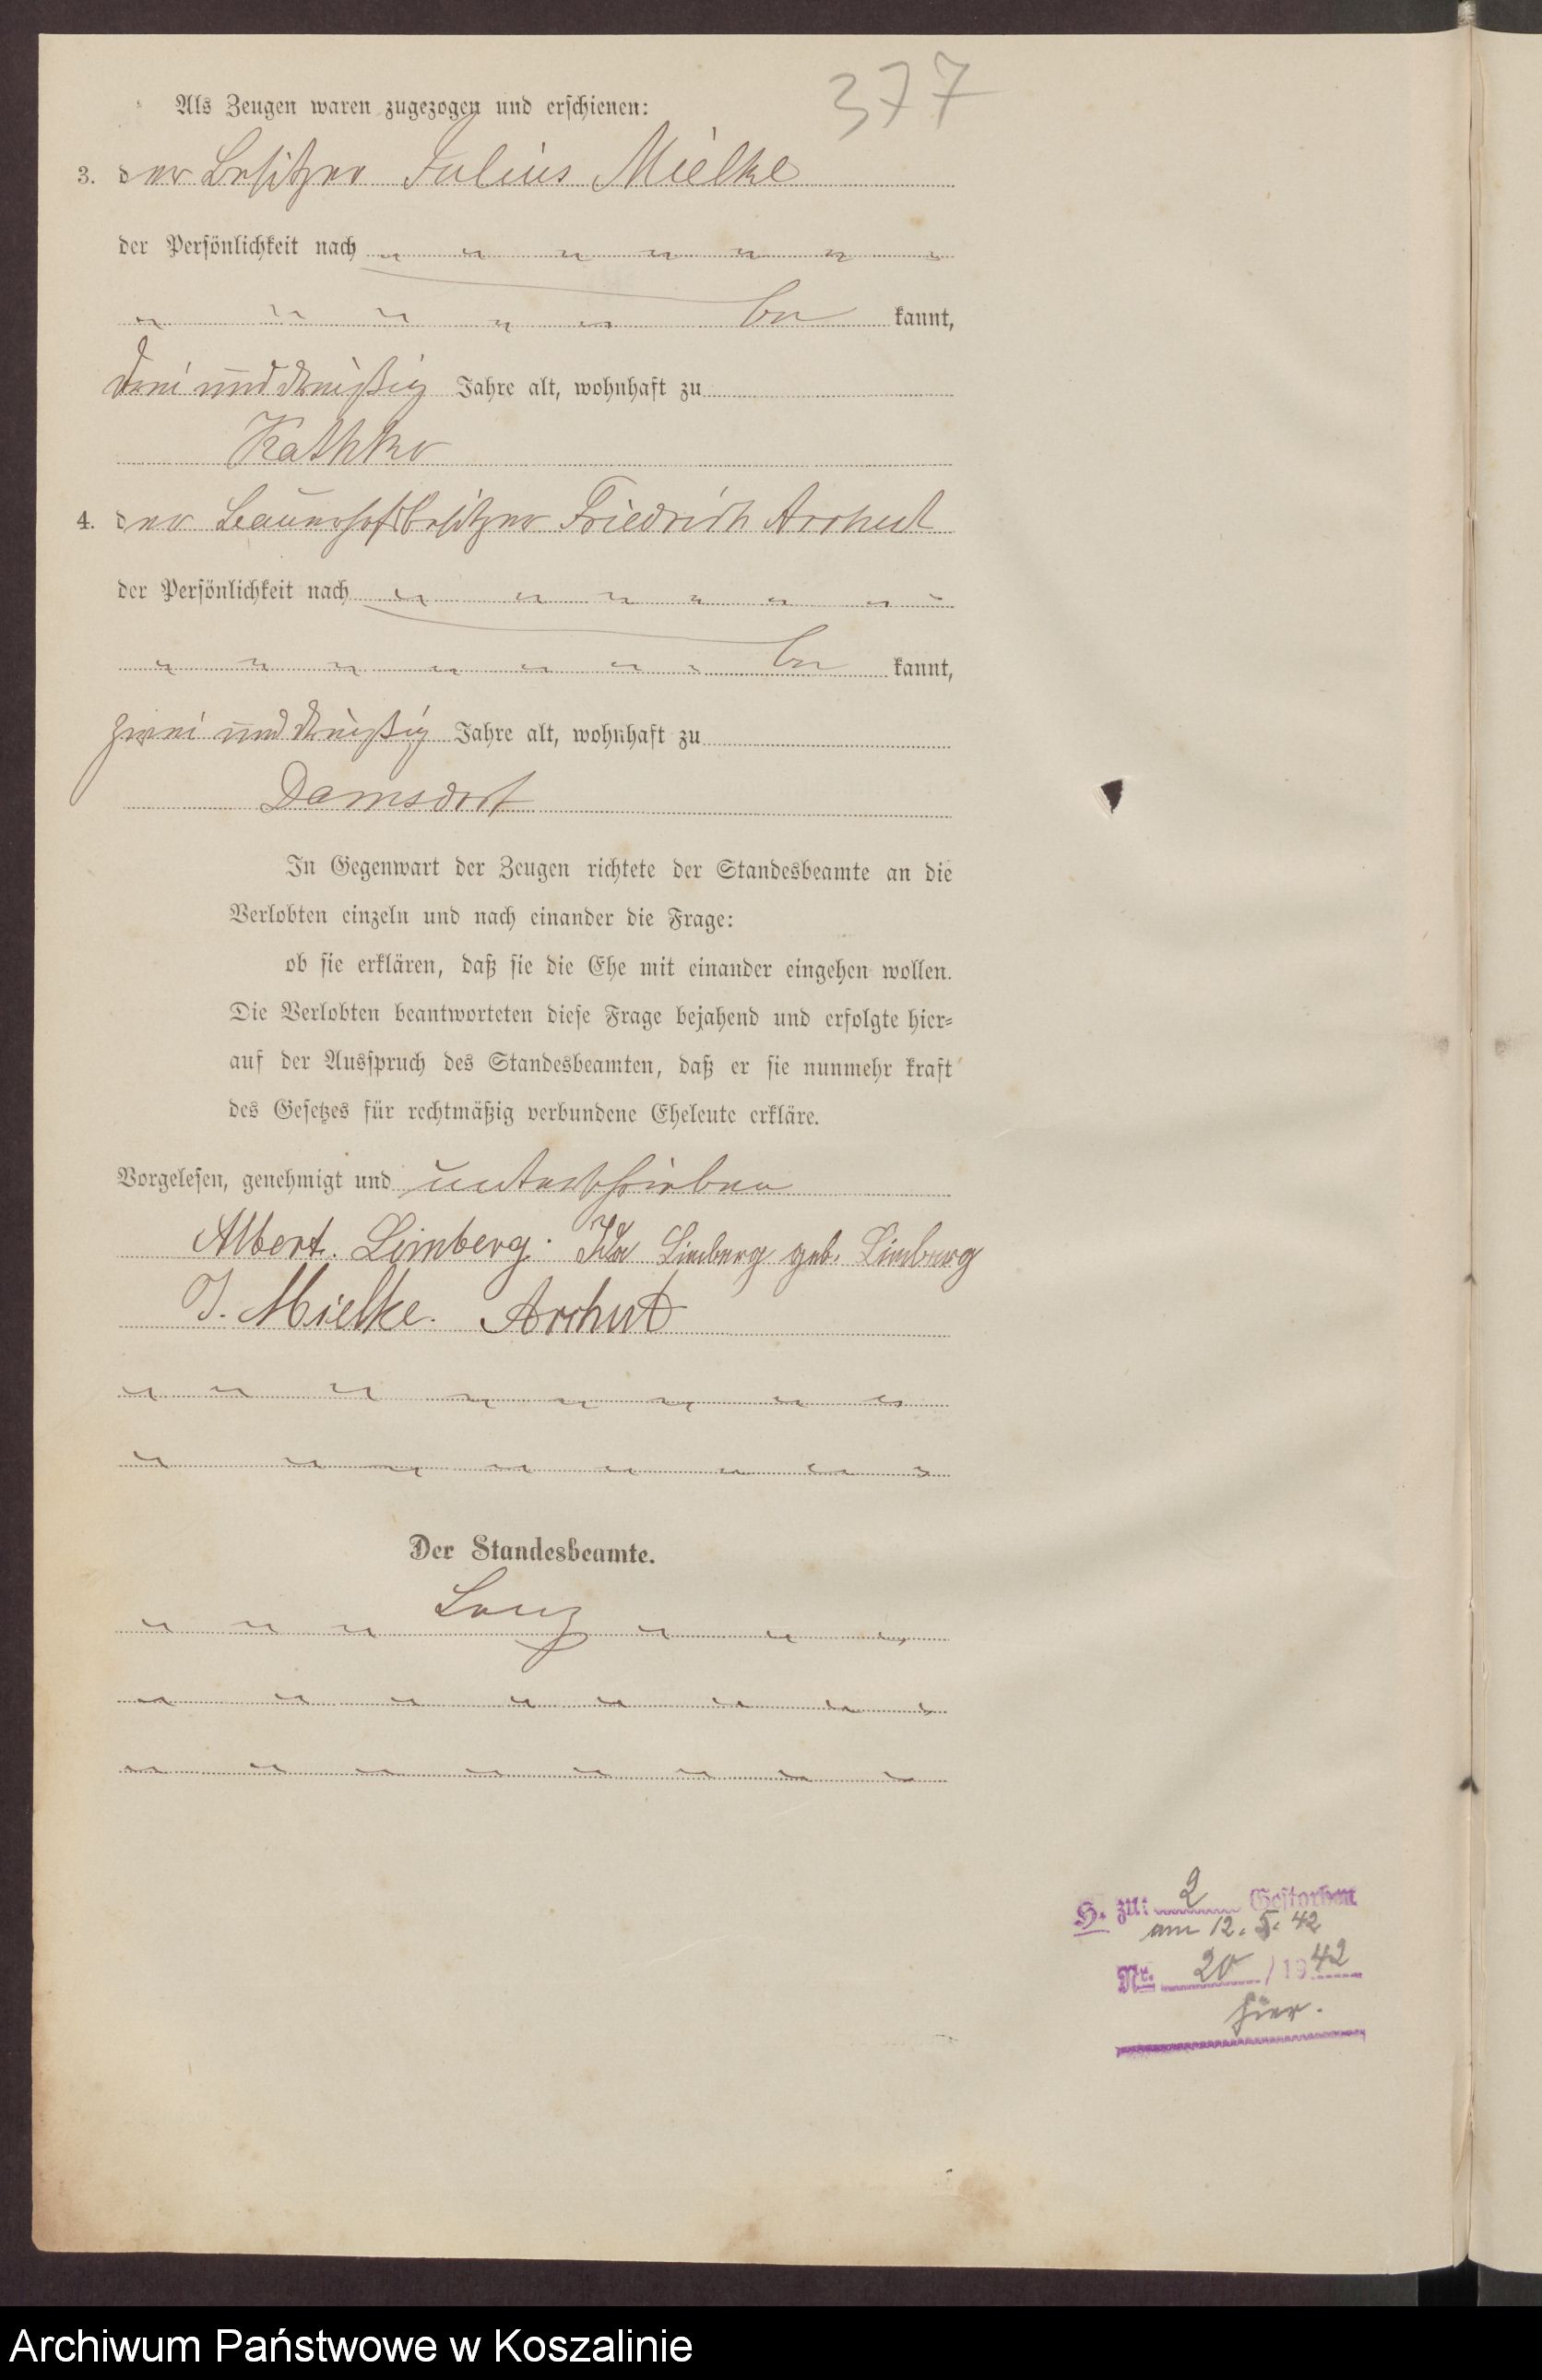 377
Als Zeugen waren zugezogen und erschienen:
3. der Besitzer Julius Mielke
der Persönlichkeit nach
be kannt,
drei und dreißig Jahre alt, wohnhaft zu
Kathkow
4. der Bauerhofsbesitzer Friedrich Archut
der Persönlichkeit nach
be kannt,
zwei und dreißig Jahre alt, wohnhaft zu
Damsdorf
In Gegenwart der Zeugen richtete der Standesbeamte an die
Verlobten einzeln und nach einander die Frage:
ob sie erklären, daß sie die Ehe mit einander eingehen wollen.
Die Verlobten beantworteten diese Frage bejahend und erfolgte hier-
auf der Ausspruch des Standesbeamten, daß er sie nunmehr kraft
des Gesetzes für rechtmäßig verbundene Eheleute erkläre.
Vorgelesen, genehmigt und unterschrieben
Albert Limberg. Ida Limberg geb. Limberg
J. Mielke. Archut
Der Standesbeamte.
H. zu: 2 Gestorben
am 12. 5. 42
Nr. 20 / 1942
hier.
Archiwum Państwowe w Koszalinie